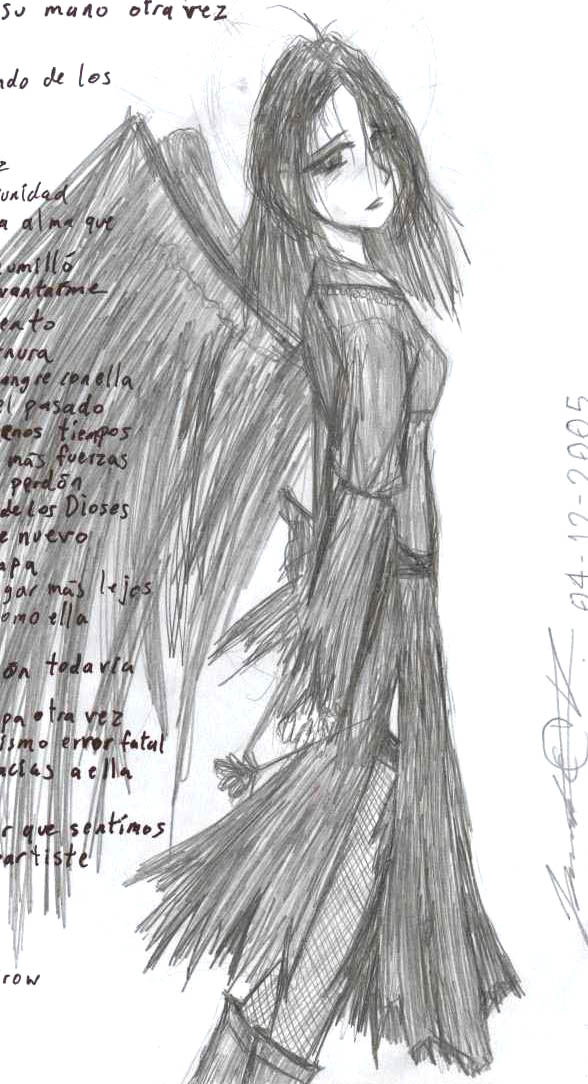 su mano otra vez
ndo de los
z
unidad
a alma que
umilló
vantarme
ento
nura
angre con ella
el pasado
enos tiempos
más fuerzas
perdón
de los Dioses
e nuevo
apa
gar más lejos
omo ella
ón todavía
pa otra vez
ismo error fatal
acias a ella
r que sentimos
artiste
row
04-12-2005